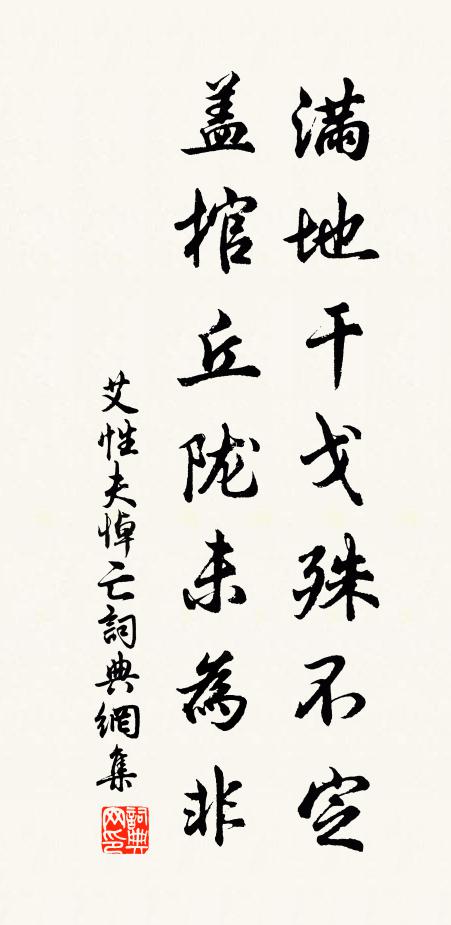 满地干戈殊不定
盖棺丘陇未為非
艾性夫悼亡詞典網集
詞典网印